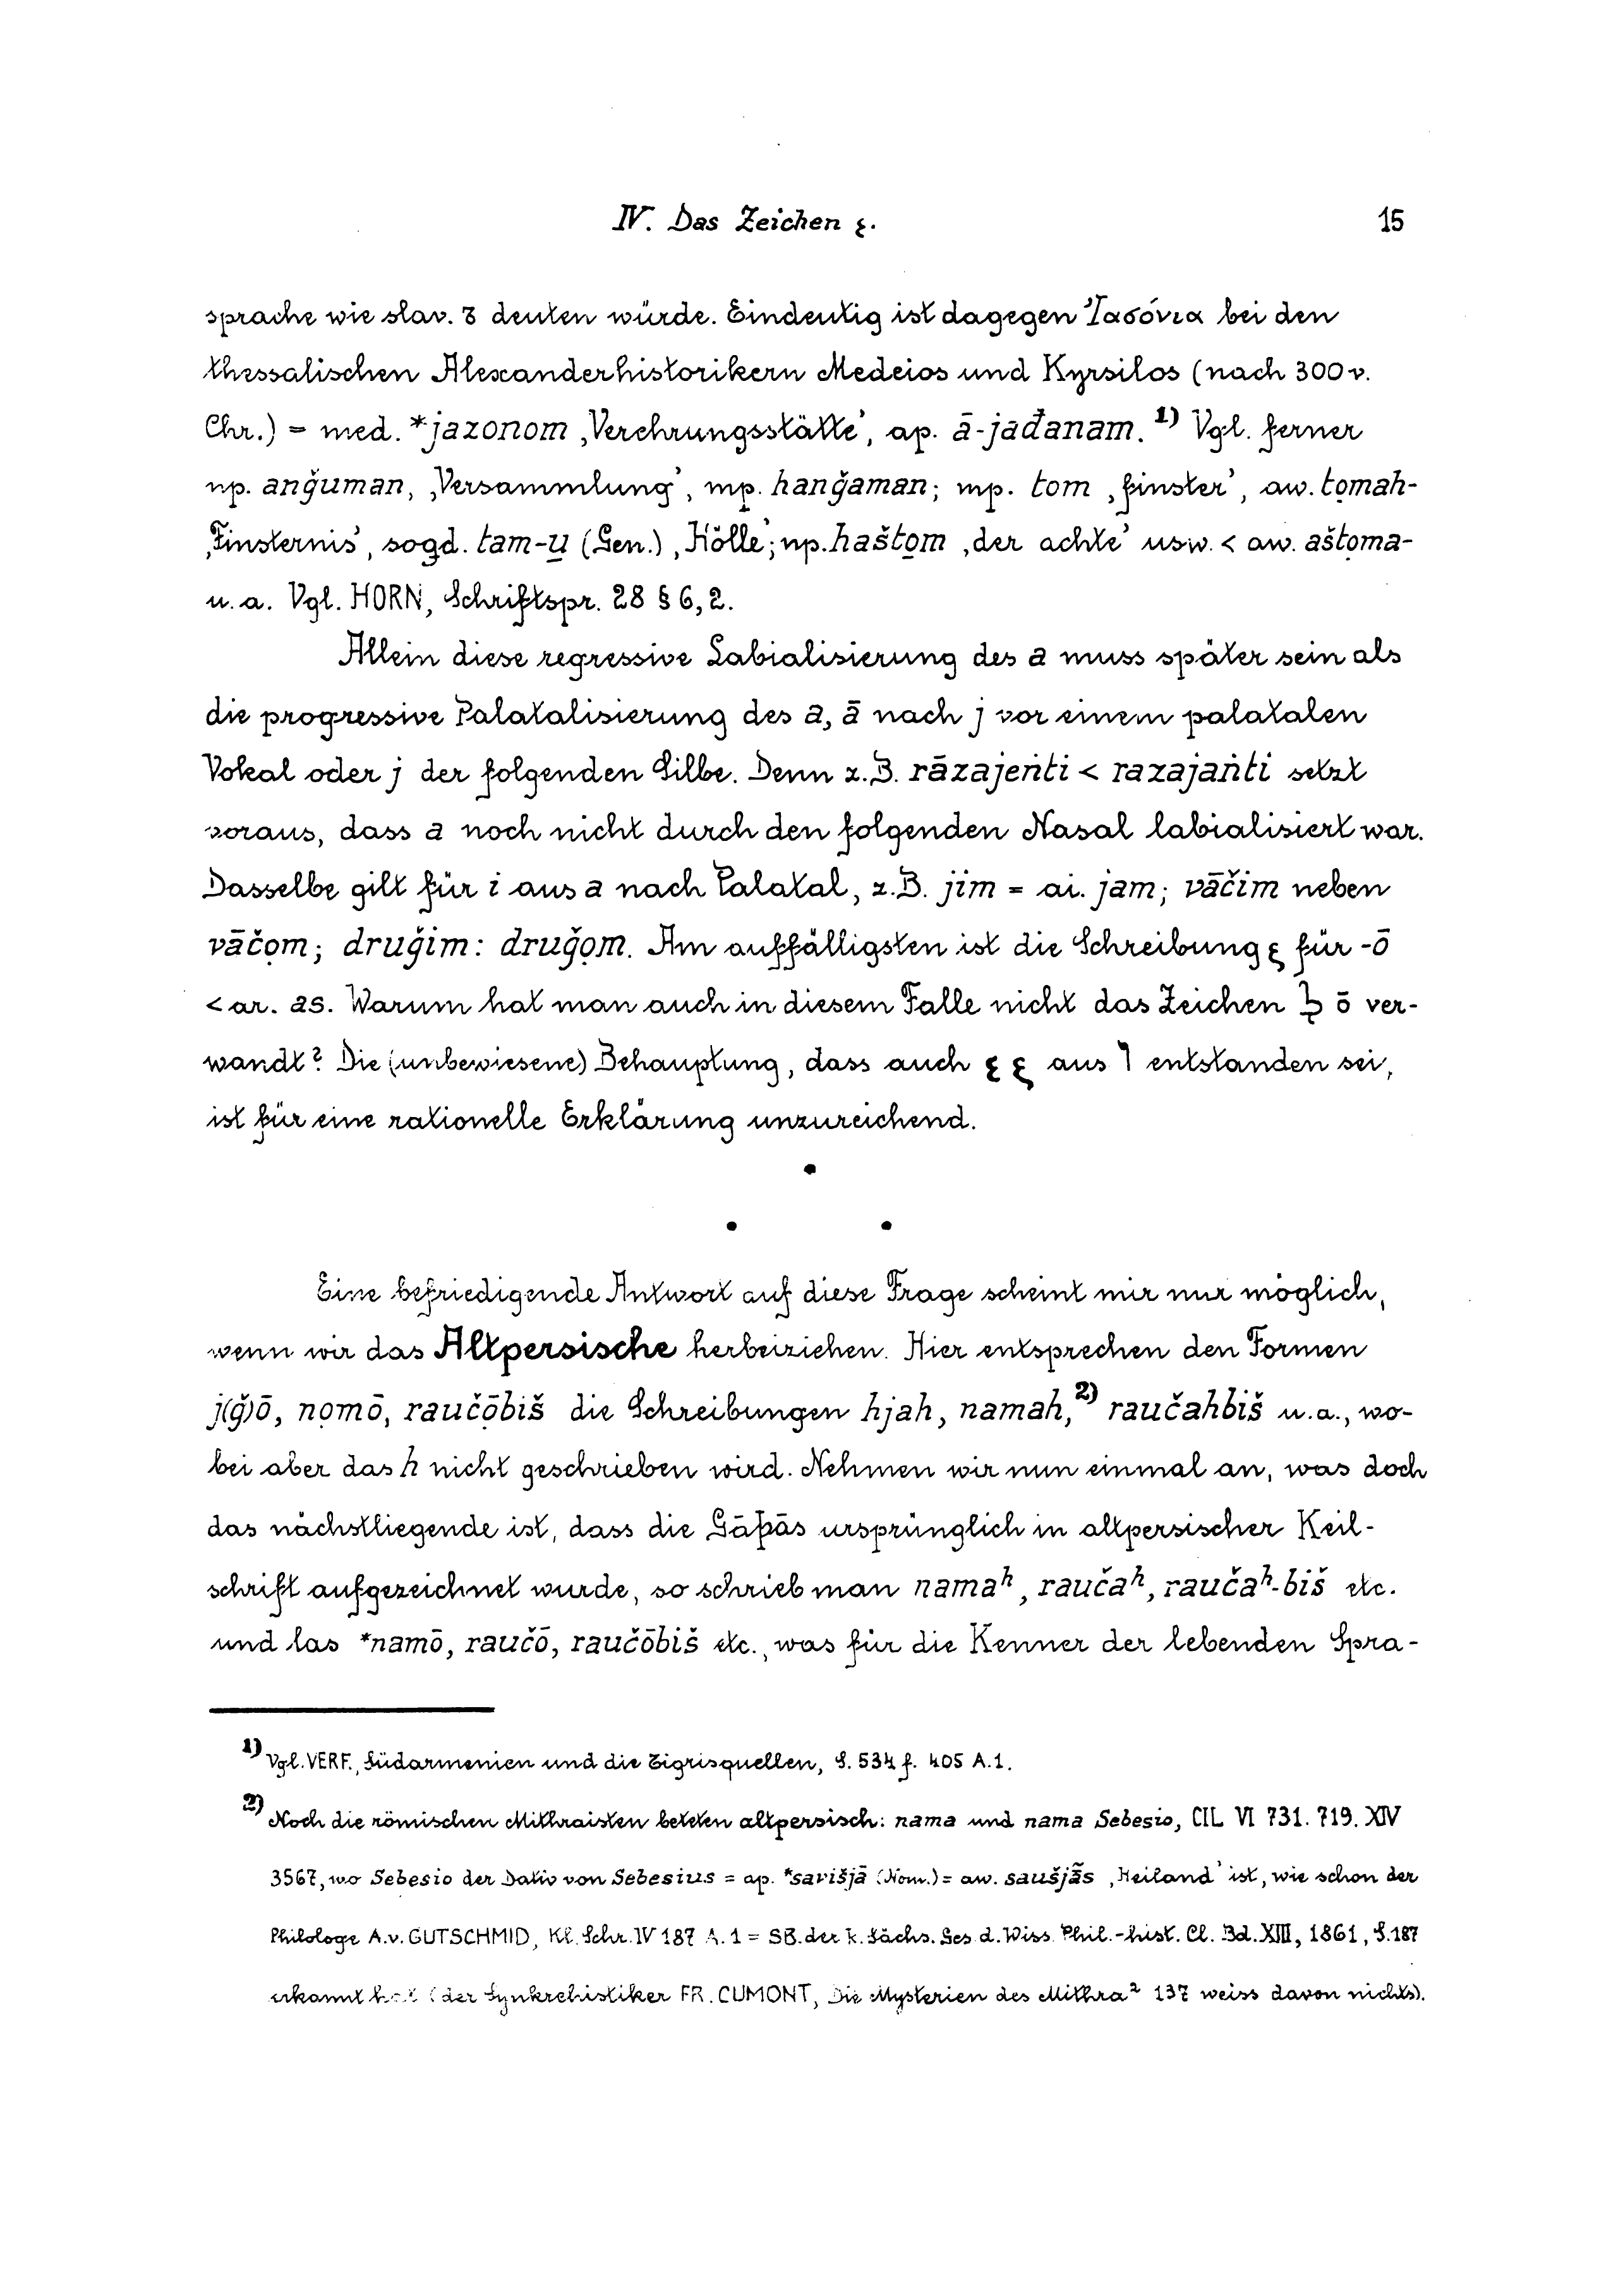 IV. Das Zeichen ε. 15
sprache wie slav. ъ deuten würde. Eindeutig ist dagegen Ἰασόνια bei den
thessalischen Alexanderhistorikern Medeios und Kyrsilos (nach 300 v.
Chr.) = med. *jazonom ‚Verehrungsstätte‘, ap. ā-jađanam. 1) Vgl. ferner
np. anǧuman, ‚Versammlung‘, mp. hanǧaman; mp. tom ‚finster‘, aw. tọmah-
‚Finsternis‘, sogd. tam-u̲ (Gen.) ‚Hölle‘; np. haštọm ‚der achte‘ usw. < aw. aštọma-
u. a. Vgl. HORN, Schriftspr. 28 § 6, 2.
Allein diese regressive Labialisierung des a muss später sein als
die progressive Palatalisierung des a, ā nach j vor einem palatalen
Vokal oder j der folgenden Silbe. Denn z. B. rāzajeṅti < razajaṅti setzt
voraus, dass a noch nicht durch den folgenden Nasal labialisiert war.
Dasselbe gilt für i aus a nach Palatal, z. B. jim = ai. jam; vāčim neben
vāčọm; druǧim : druǧọm. Am auffälligsten ist die Schreibung für -ō
< ar. as. Warum hat man auch in diesem Falle nicht das Zeichen ō ver-
wandt? Die (unbewiesene) Behauptung, dass auch aus entstanden sei,
ist für eine rationelle Erklärung unzureichend.
•
• •
Eine befriedigende Antwort auf diese Frage scheint mir nur möglich,
wenn wir das Altpersische herbeiziehen. Hier entsprechen den Formen
j(ǧ)ō, nọmō, raučọ̄biš die Schreibungen hjah, namah, 2) raučahbiš u. a., wo-
bei aber das h nicht geschrieben wird. Nehmen wir nun einmal an, was doch
das nächstliegende ist, dass die Gāþās ursprünglich in altpersischer Keil-
schrift aufgezeichnet wurde, so schrieb man namaʰ, raučaʰ, raučaʰ-biš etc.
und las *namō, raučō, raučōbiš etc., was für die Kenner der lebenden Spra-
1) Vgl. VERF., Südarmenien und die Tigrisquellen, S. 534 f. 405 A. 1.
2) Noch die römischen Mithraisten beteten altpersisch: nama und nama Sebesio, CIL VI 731. 719. XIV
3567, wo Sebesio der Dativ von Sebesius = ap. *savišjā (Nom.) = aw. saušją̄s ‚Heiland‘ ist, wie schon der
Philologe A. v. GUTSCHMID, Kl. Schr. IV 187 A. 1 = SB. der k. Sächs. Ges. d. Wiss. Phil.-hist. Cl. Bd. XIII, 1861, S. 187
erkannt hat (der Synkrehistiker FR. CUMONT, Die Mysterien des Mithra² 137 weiss davon nichts).